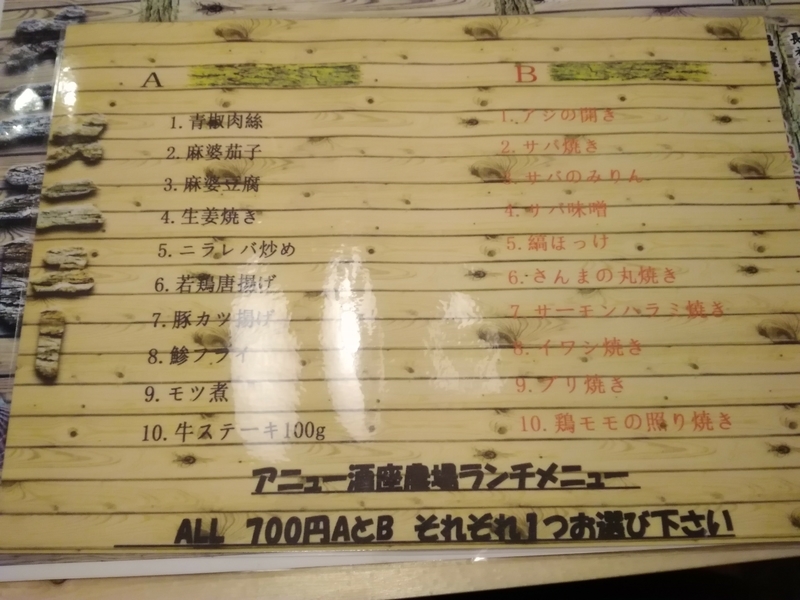 A
1. 青椒肉絲
2. 麻婆茄子
3. 麻婆豆腐
4. 生姜焼き
5. ニラレバ炒め
6. 若鶏唐揚げ
7. 豚カツ揚げ
8. 鯵フライ
9. モツ煮
10. 牛ステーキ100g
B
1. アジの開き
2. サバ焼き
3. サバのみりん
4. サバ味噌
5. 縞ほっけ
6. さんまの丸焼き
7. サーモンハラミ焼き
8. イワシ焼き
9. ブリ焼き
10. 鶏モモの照り焼き
アニュー酒座農場ランチメニュー
ALL 700円AとB それぞれ1つお選び下さい